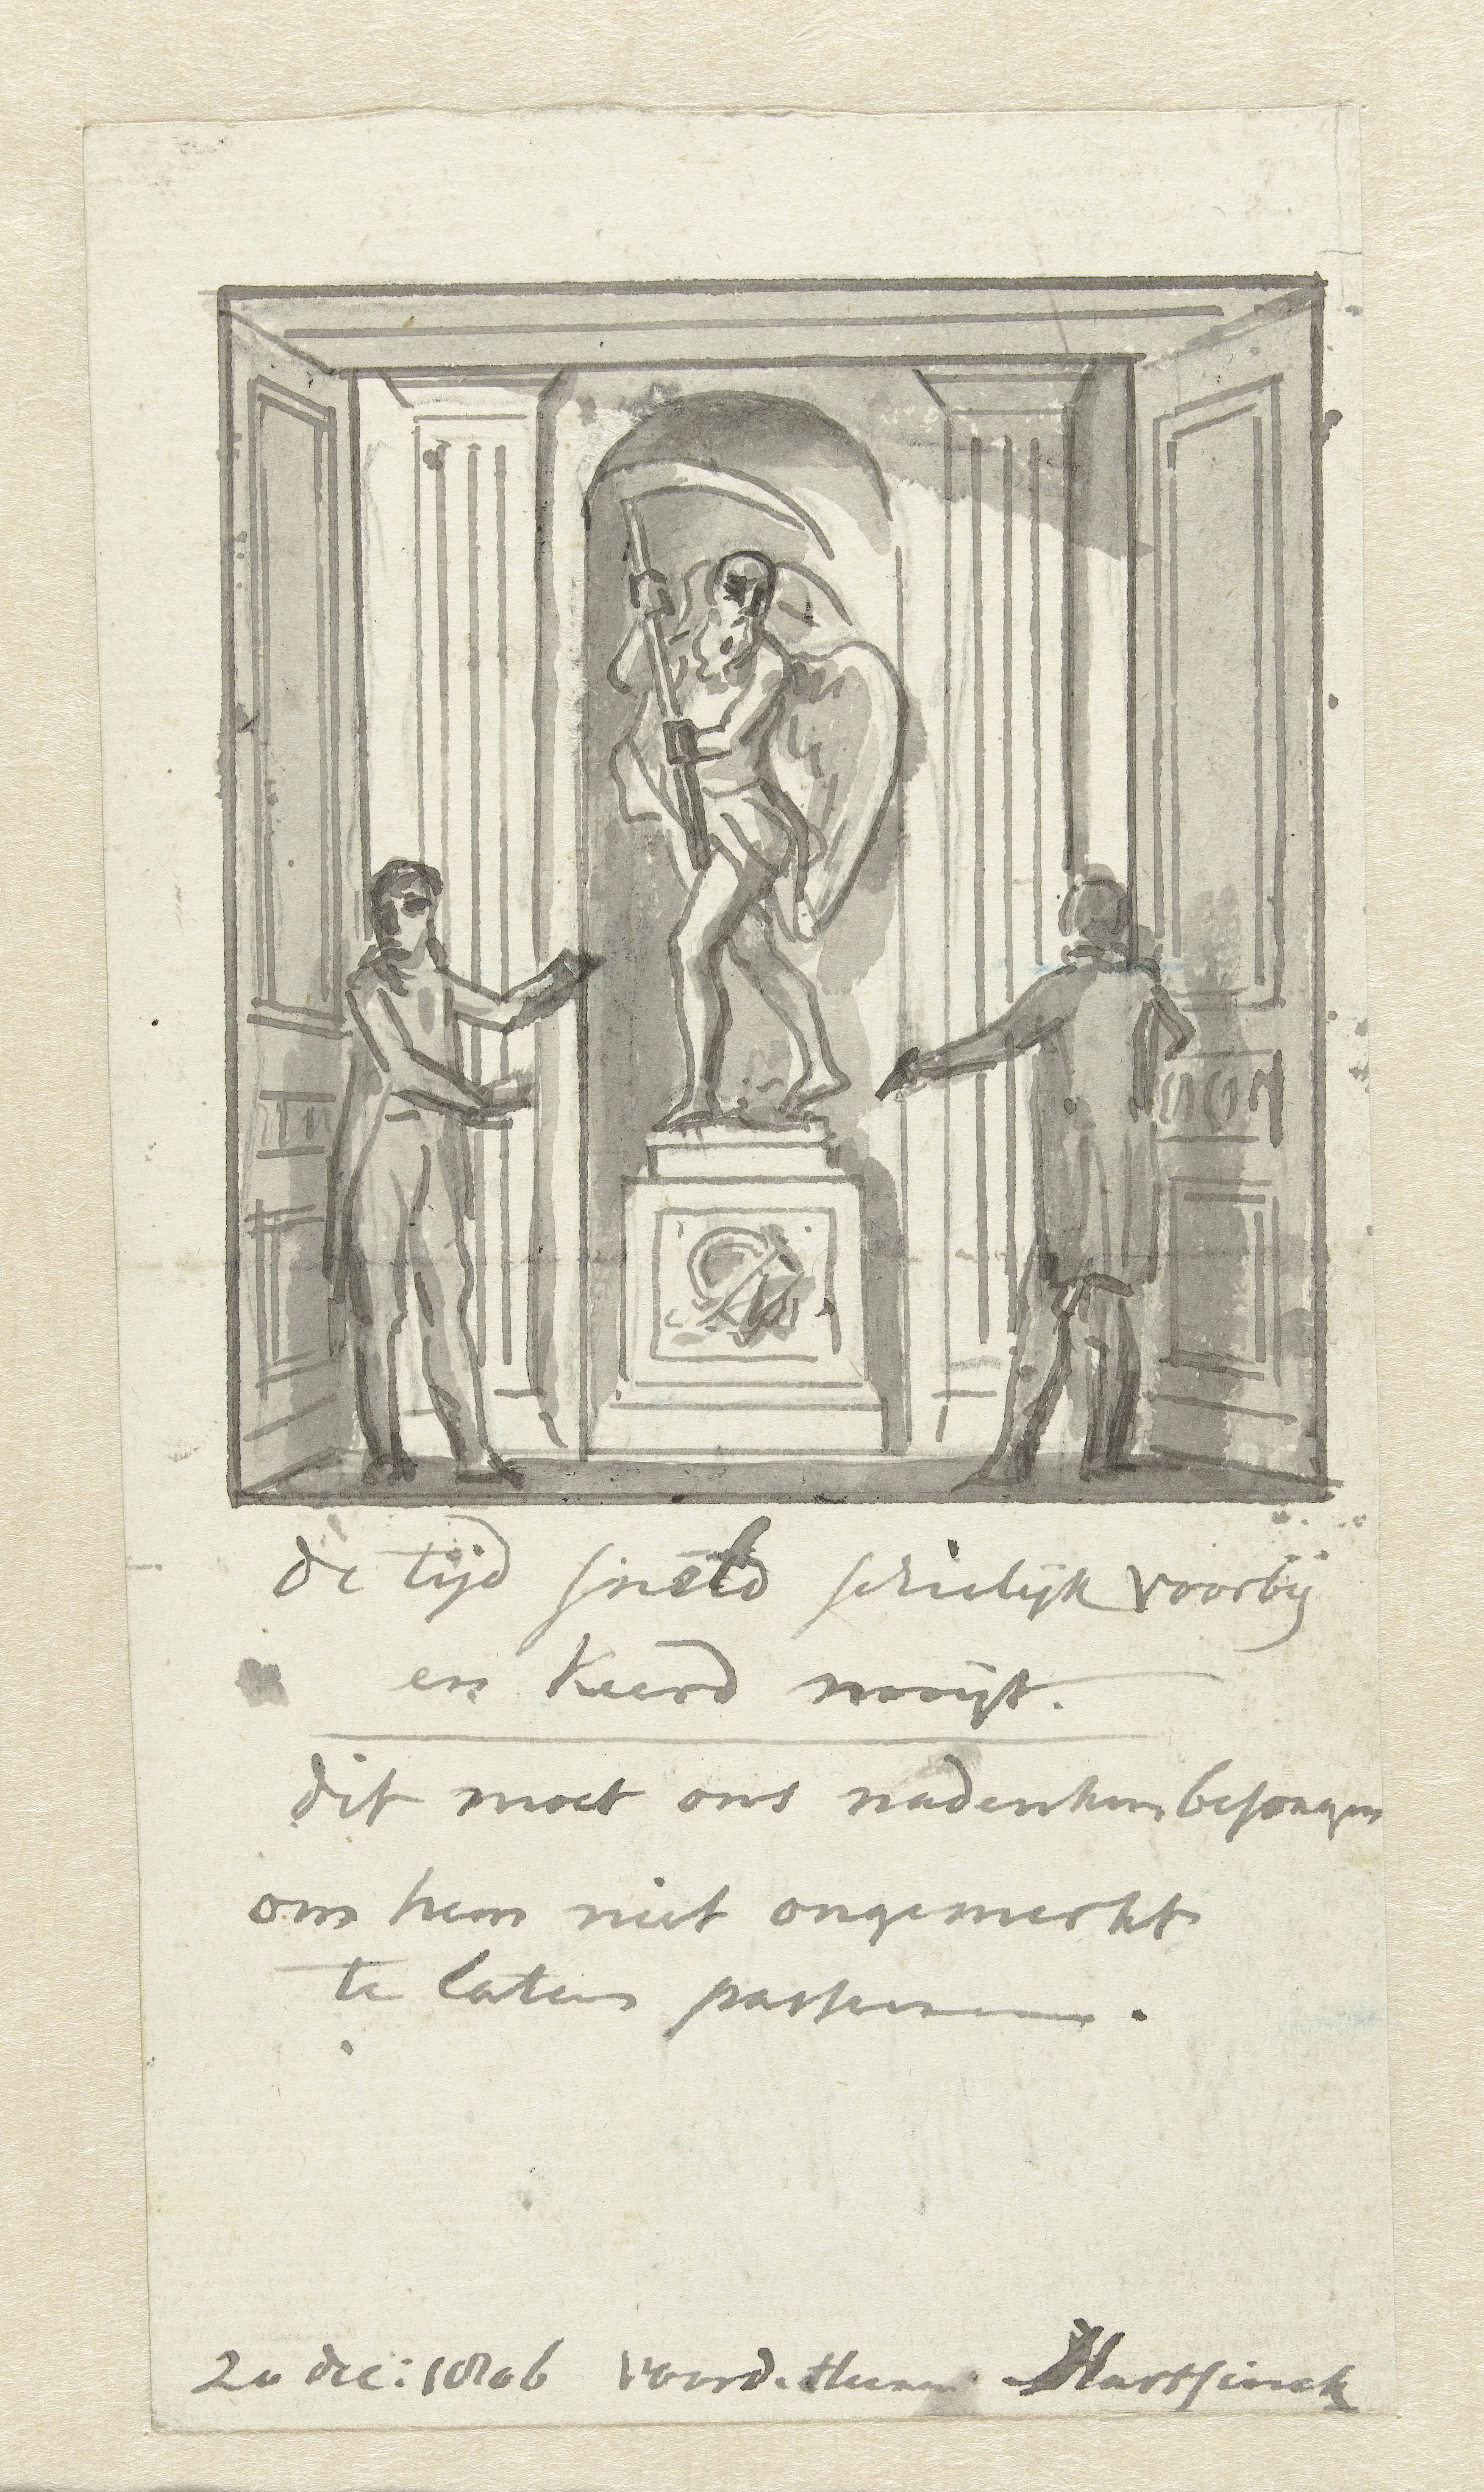 de tijd sneld schielijk voorbij
en keerd nooijt.
dit moet ons nadenken besorgen
om hem niet ongemerkt
te laten passeren.
20 dec: 1806 voor d. Heer Hartsinck